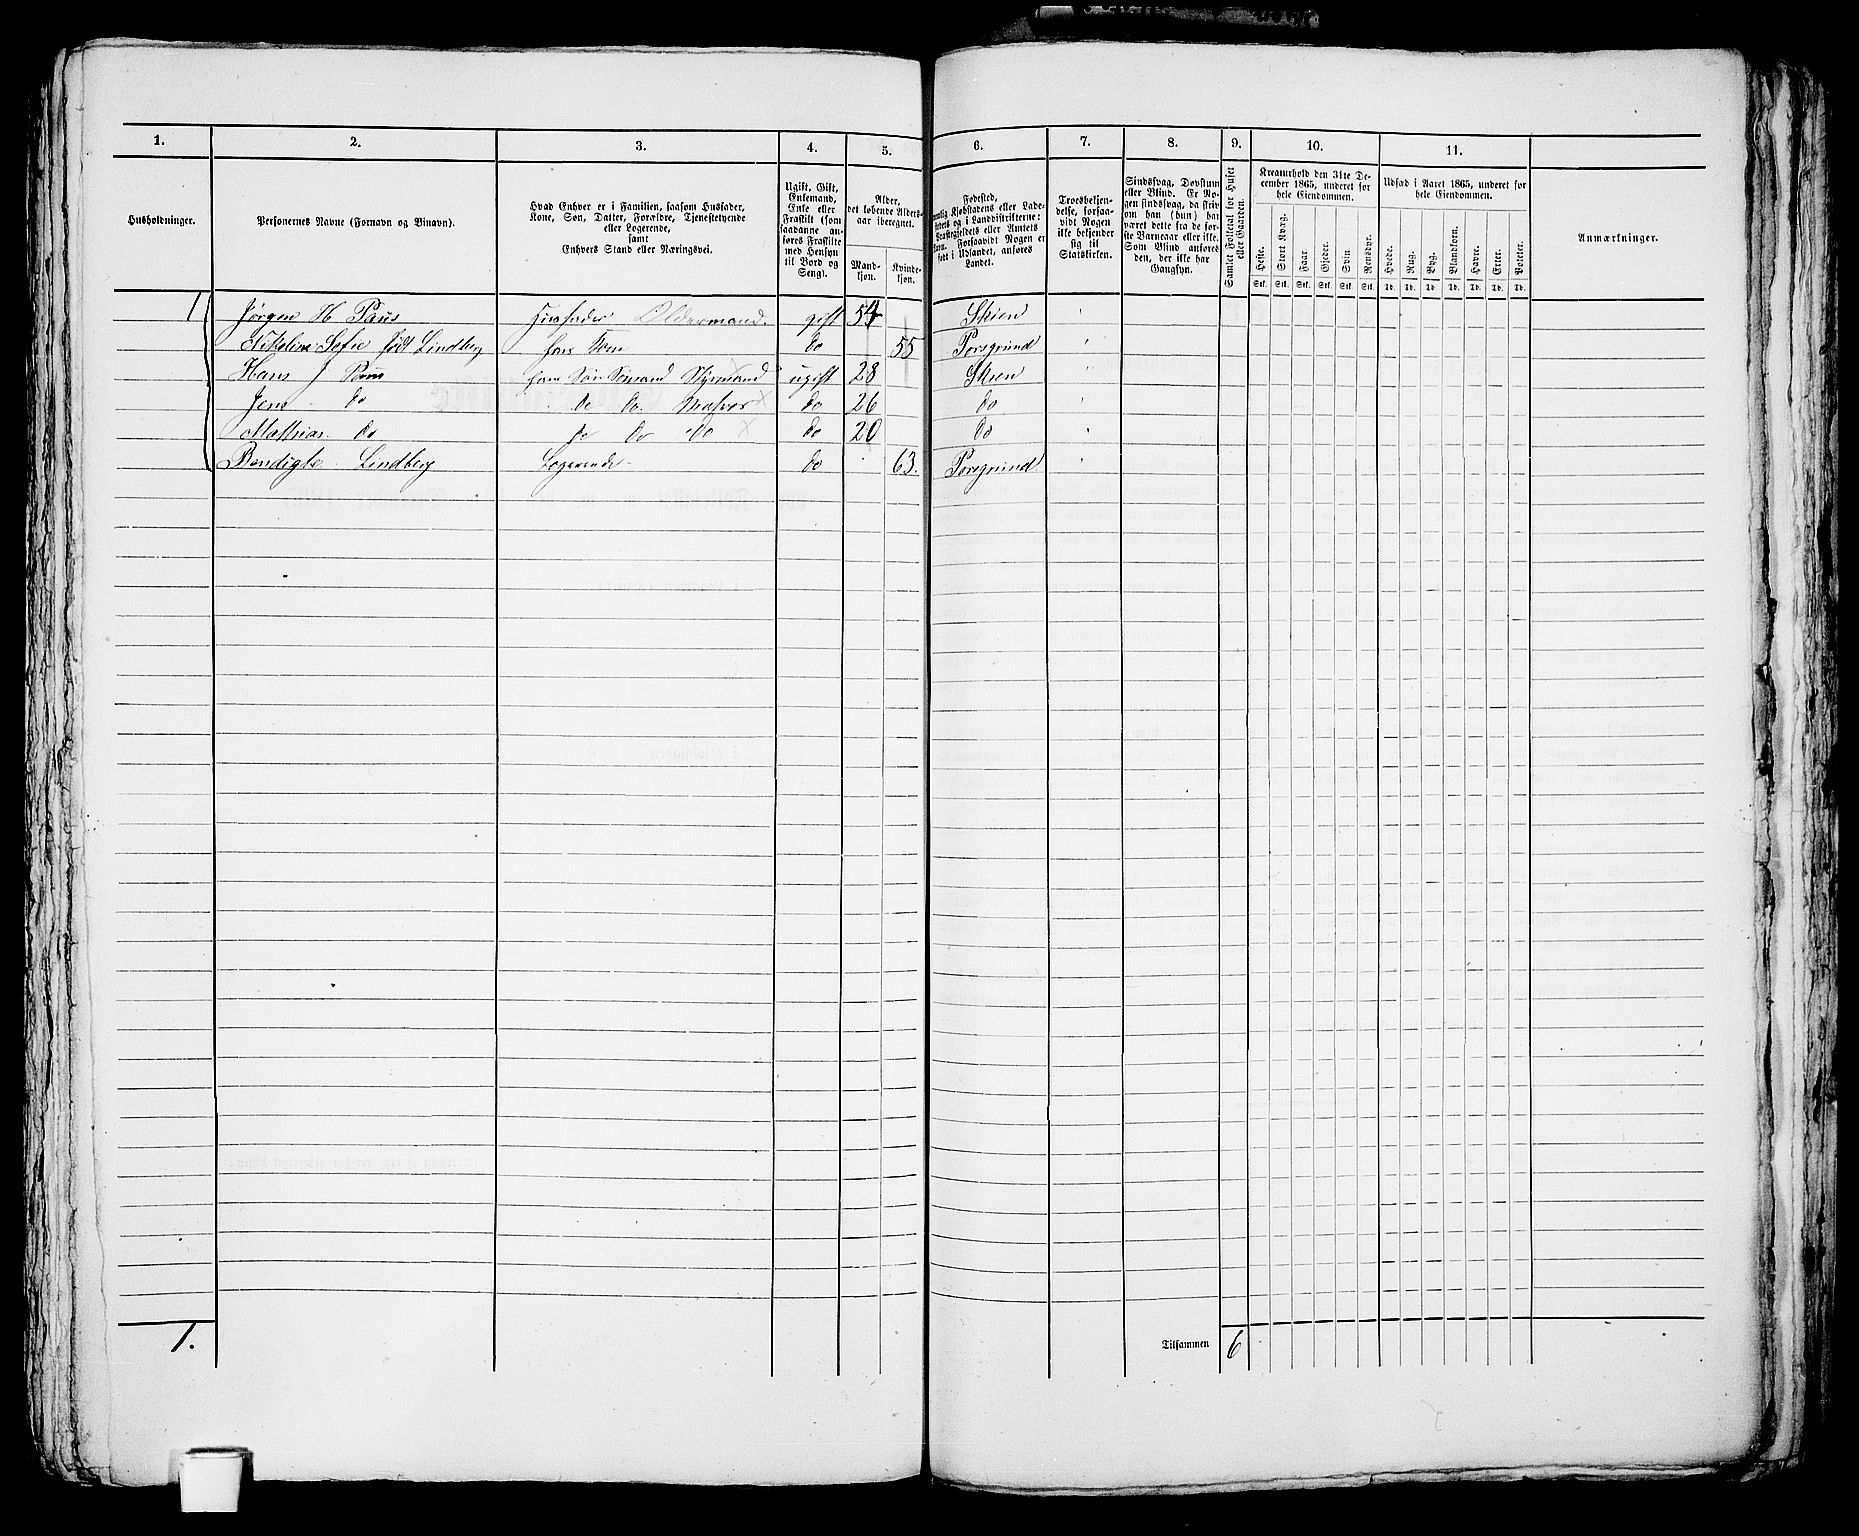 1. 2. 3. 4. 5. 6. 7. 8. 9. 10. 11.
Husholdninger.
Personernes Navne (Fornavn og Binavn).
Hvad Enhver er i Familien, saasom Husfader,
Kone, Søn, Datter, Forældre, Tjenestetyende
eller Logerende,
samt
Enhvers Stand eller Næringsvei.
Ugift, Gift,
Enkemand,
Enke eller
Fraskilt (som
saadanne an-
føres Fraskilte
med Hensyn
til Bord og
Seng).
Alder,
det løbende Alders-
aar iberegnet.
Mand-
kjøn.
Kvinde-
kjøn.
Fødested,
nemlig Kjøbstadens eller Lade-
stedets og i Landdistrikterne:
Præstegjeldets eller Amtets
Navn. Forsaavidt Nogen er
født i Udlandet, anføres
Landet.
Troesbekjen-
delse, forsaa-
vidt Nogen
ikke bekjender
sig til
Statskirken.
Sindssvag, Døvstum
eller Blind. Er No-
gen sindssvag, da skriv
om han (hun) har
været dette fra de før-
ste Barneaar eller ikke.
Som Blind anføres
den, der ikke har
Gangsyn.
Samlet Folketal for Huset
eller Gaarden.
Kreaturhold den 31te De-
cember 1865, underet for
hele Eiendommen.
Heste. Stort Kvæg. Faar. Gjeder. Svin. Rensdyr.
Stk. Stk. Stk. Stk. Stk. Stk.
Udsæd i Aaret 1865, underet for
hele Eiendommen.
Hvede. Rug. Byg. Blandkorn. Havre. Erter. Poteter.
Td. Td. Td. Td. Td. Td. Td.
Anmærkninger.
1 Jørgen H Paus Huusfader Oldermand. gift 54 Skien
Nikoline Sofie født Lindberg hans Kone do 55 Porsgrund
Hans J Paus hans Søn Sømand Styrmand ugift 28 Skien
Jens do do do Matros do 26 do
Mathias do do do do do 20 do
Bendigte Lindberg Logerende do 63. Porsgrund
1.
Tilsammen 6